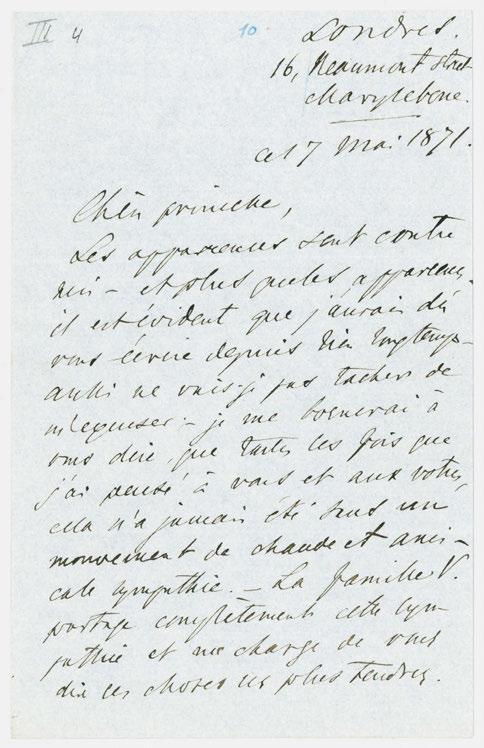 III 4
10
Londres.
16, Beaumont Street
Marylebone.
ce 17 Mai 1871.
Chère princesse,
Les apparences sont contre
moi – et plus que les apparences,
il est évident que j'aurais dû
vous écrire depuis bien longtemps –
aussi ne vais-je pas tâcher de
m'excuser: – je me bornerai à
vous dire que toutes les fois que
j'ai pensé à vous et aux votres,
cela n'a jamais été sans un
mouvement de chaude et ami-
cale sympathie. – La famille V.
partage complètement cette sym-
pathie et me charge de vous
dire les choses les plus tendres.